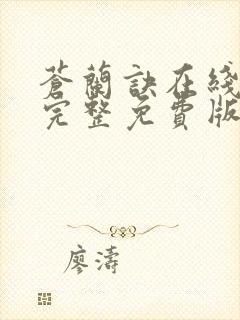 蒼蘭訣在綫
完整免費版
廖濤